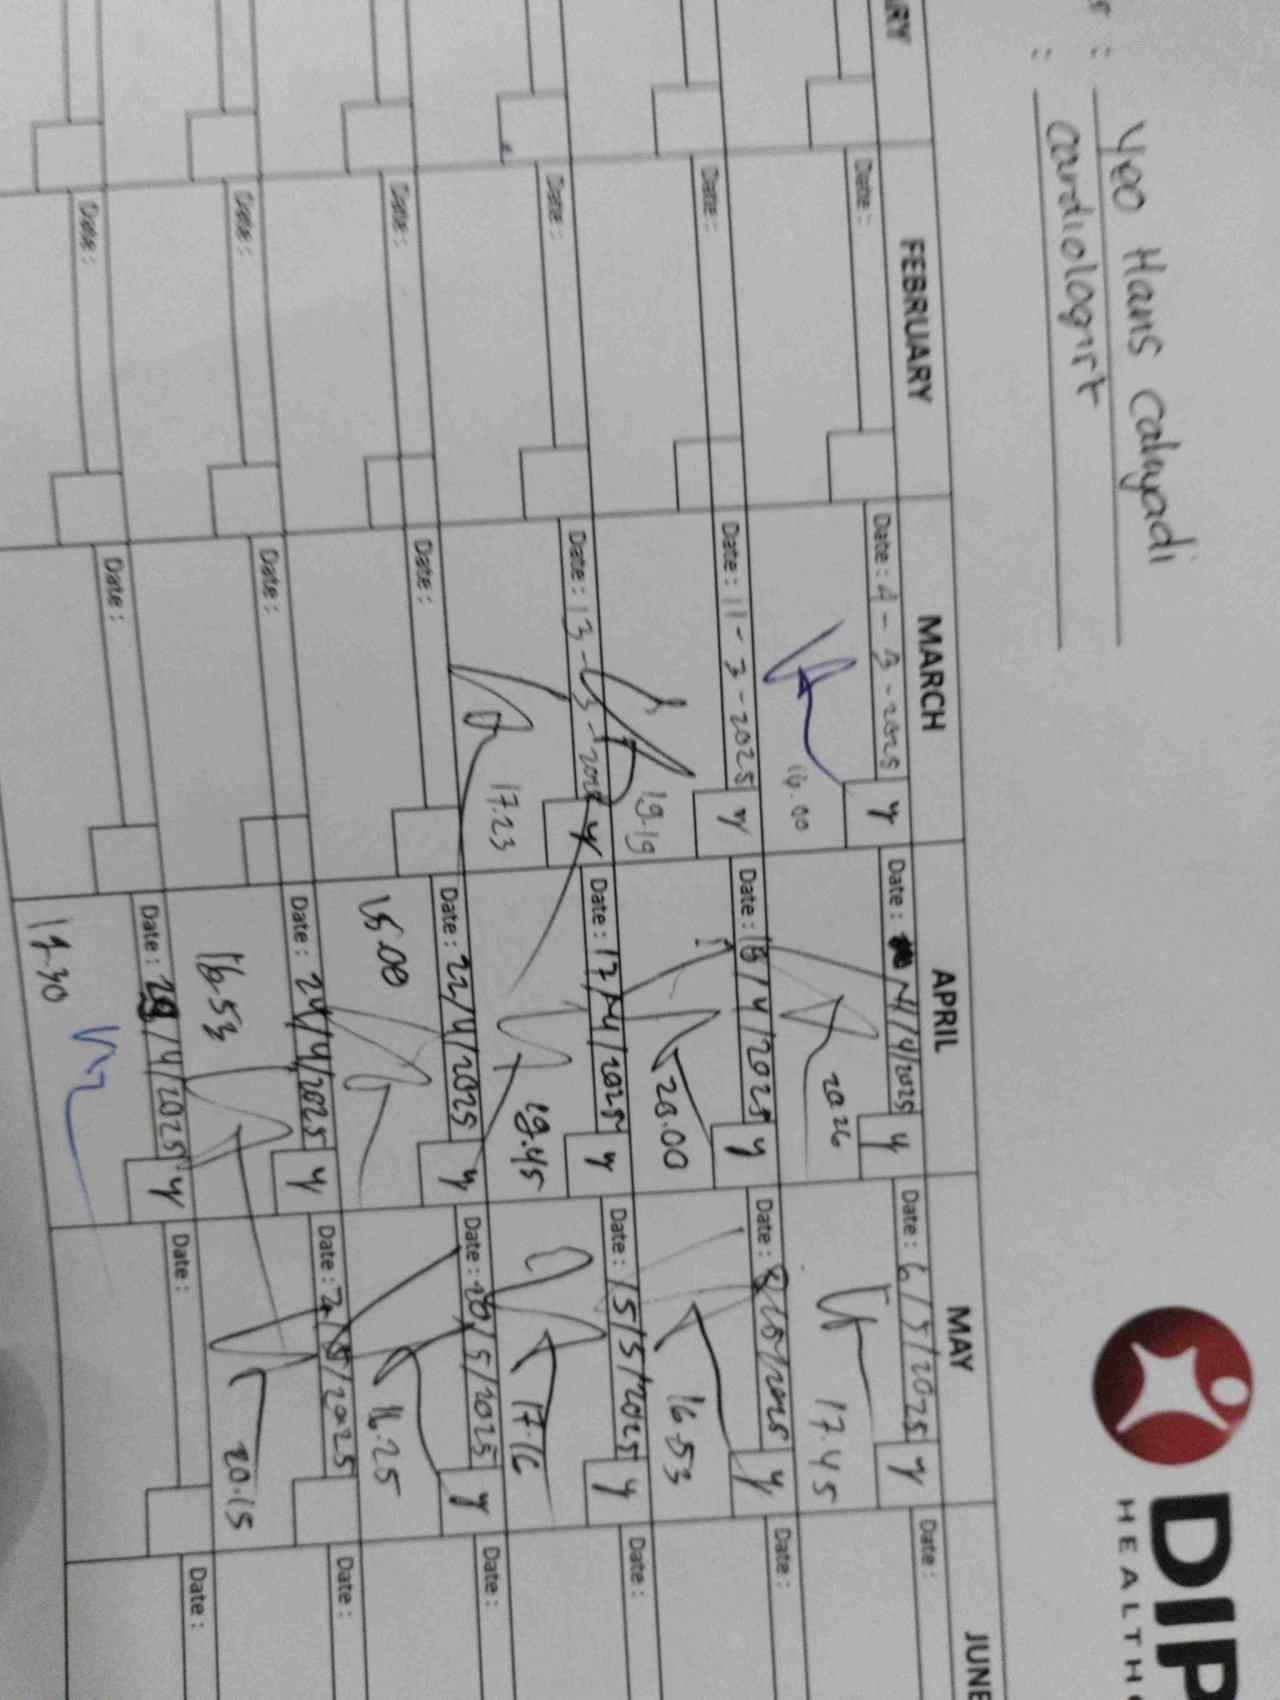 : Yoo Hans Cahyadi
: Cardiologist
DIP
HEALTHC
RY
FEBRUARY
MARCH
APRIL
MAY
JUNE
Date :
Date : 4-3-2025 y
Date : 4/4/2025 y
Date : 6/5/2025 y
Date :
14.00
20.26
17.45
Date :
Date : 11-3-2025 y
Date : 15/4/2025 y
Date : 8/5/2025 y
Date :
19.19
20.00
16.53
Date :
Date : 13-3-2025 y
Date : 17/4/2025 y
Date : 15/5/2025 y
Date :
17.23
19.45
17.16
Date :
Date :
Date : 22/4/2025 y
Date : 20/5/2025 y
Date :
15.00
16.25
Date :
Date :
Date : 24/4/2025 y
Date : /5/2025
Date :
16.53
20.15
Date :
Date :
Date : 29/4/2025 y
Date :
Date :
17.30